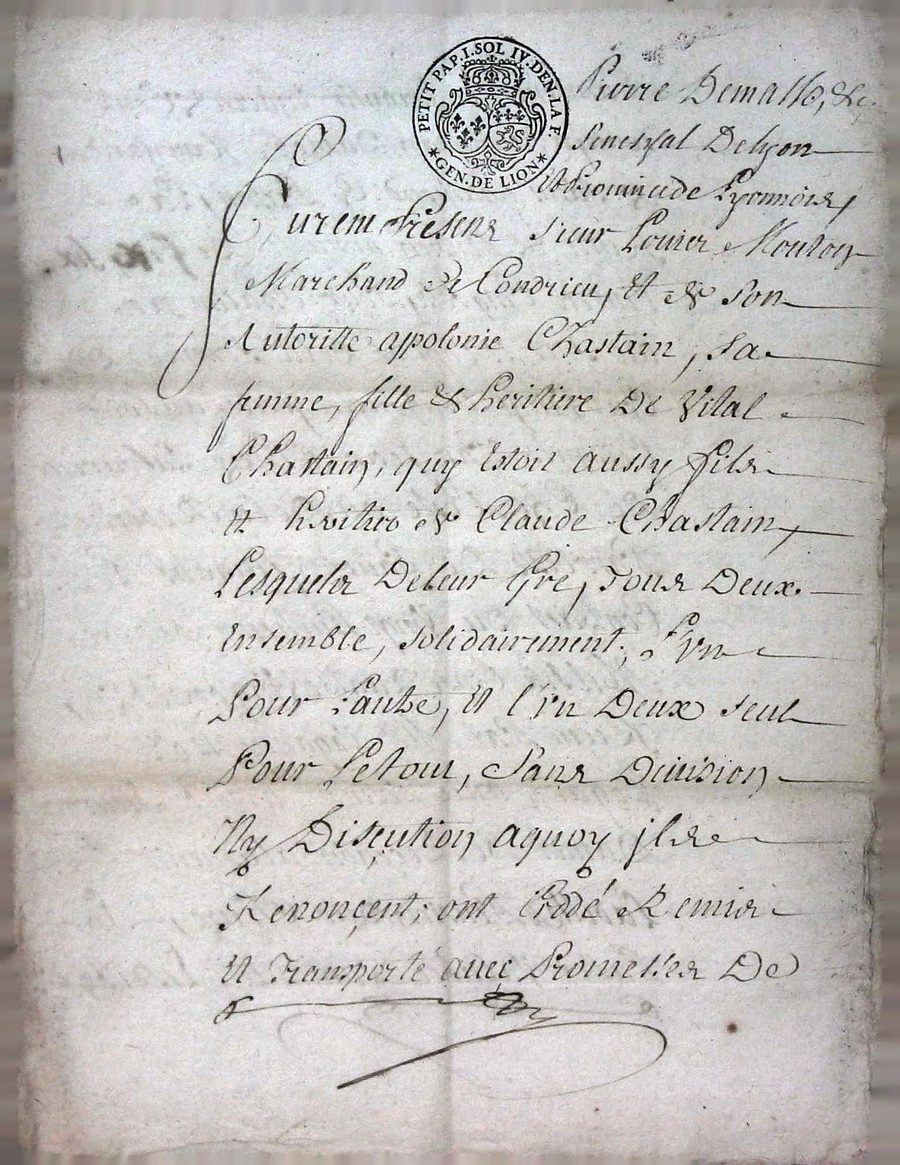 PETIT PAP. I. SOL IV. DEN. LA F.
*GEN. DE LION*
Pierre Demasso, &c.
Seneschal Delyon
Et Prouince de Lyonnois,
Furem Présens Sieur Louis Mouton
Marchand de Condrieu, Et de Son
Autoritté appolonie Chastain, Sa
femme, fille & heritiere De Vital
Chastain, quy Estoit aussy fils
et heritier de Claude Chastain,
Lesquels Deleur Gré, Tous Deux
Ensemble, Solidairement, L'vn
Pour L'autre, et L'vn Deux Seul
Pour Letout, Sans Diuision
Ny Discution aquoy jls
Renonçent; ont Cédé Remis
et Transporté auec Promesses De